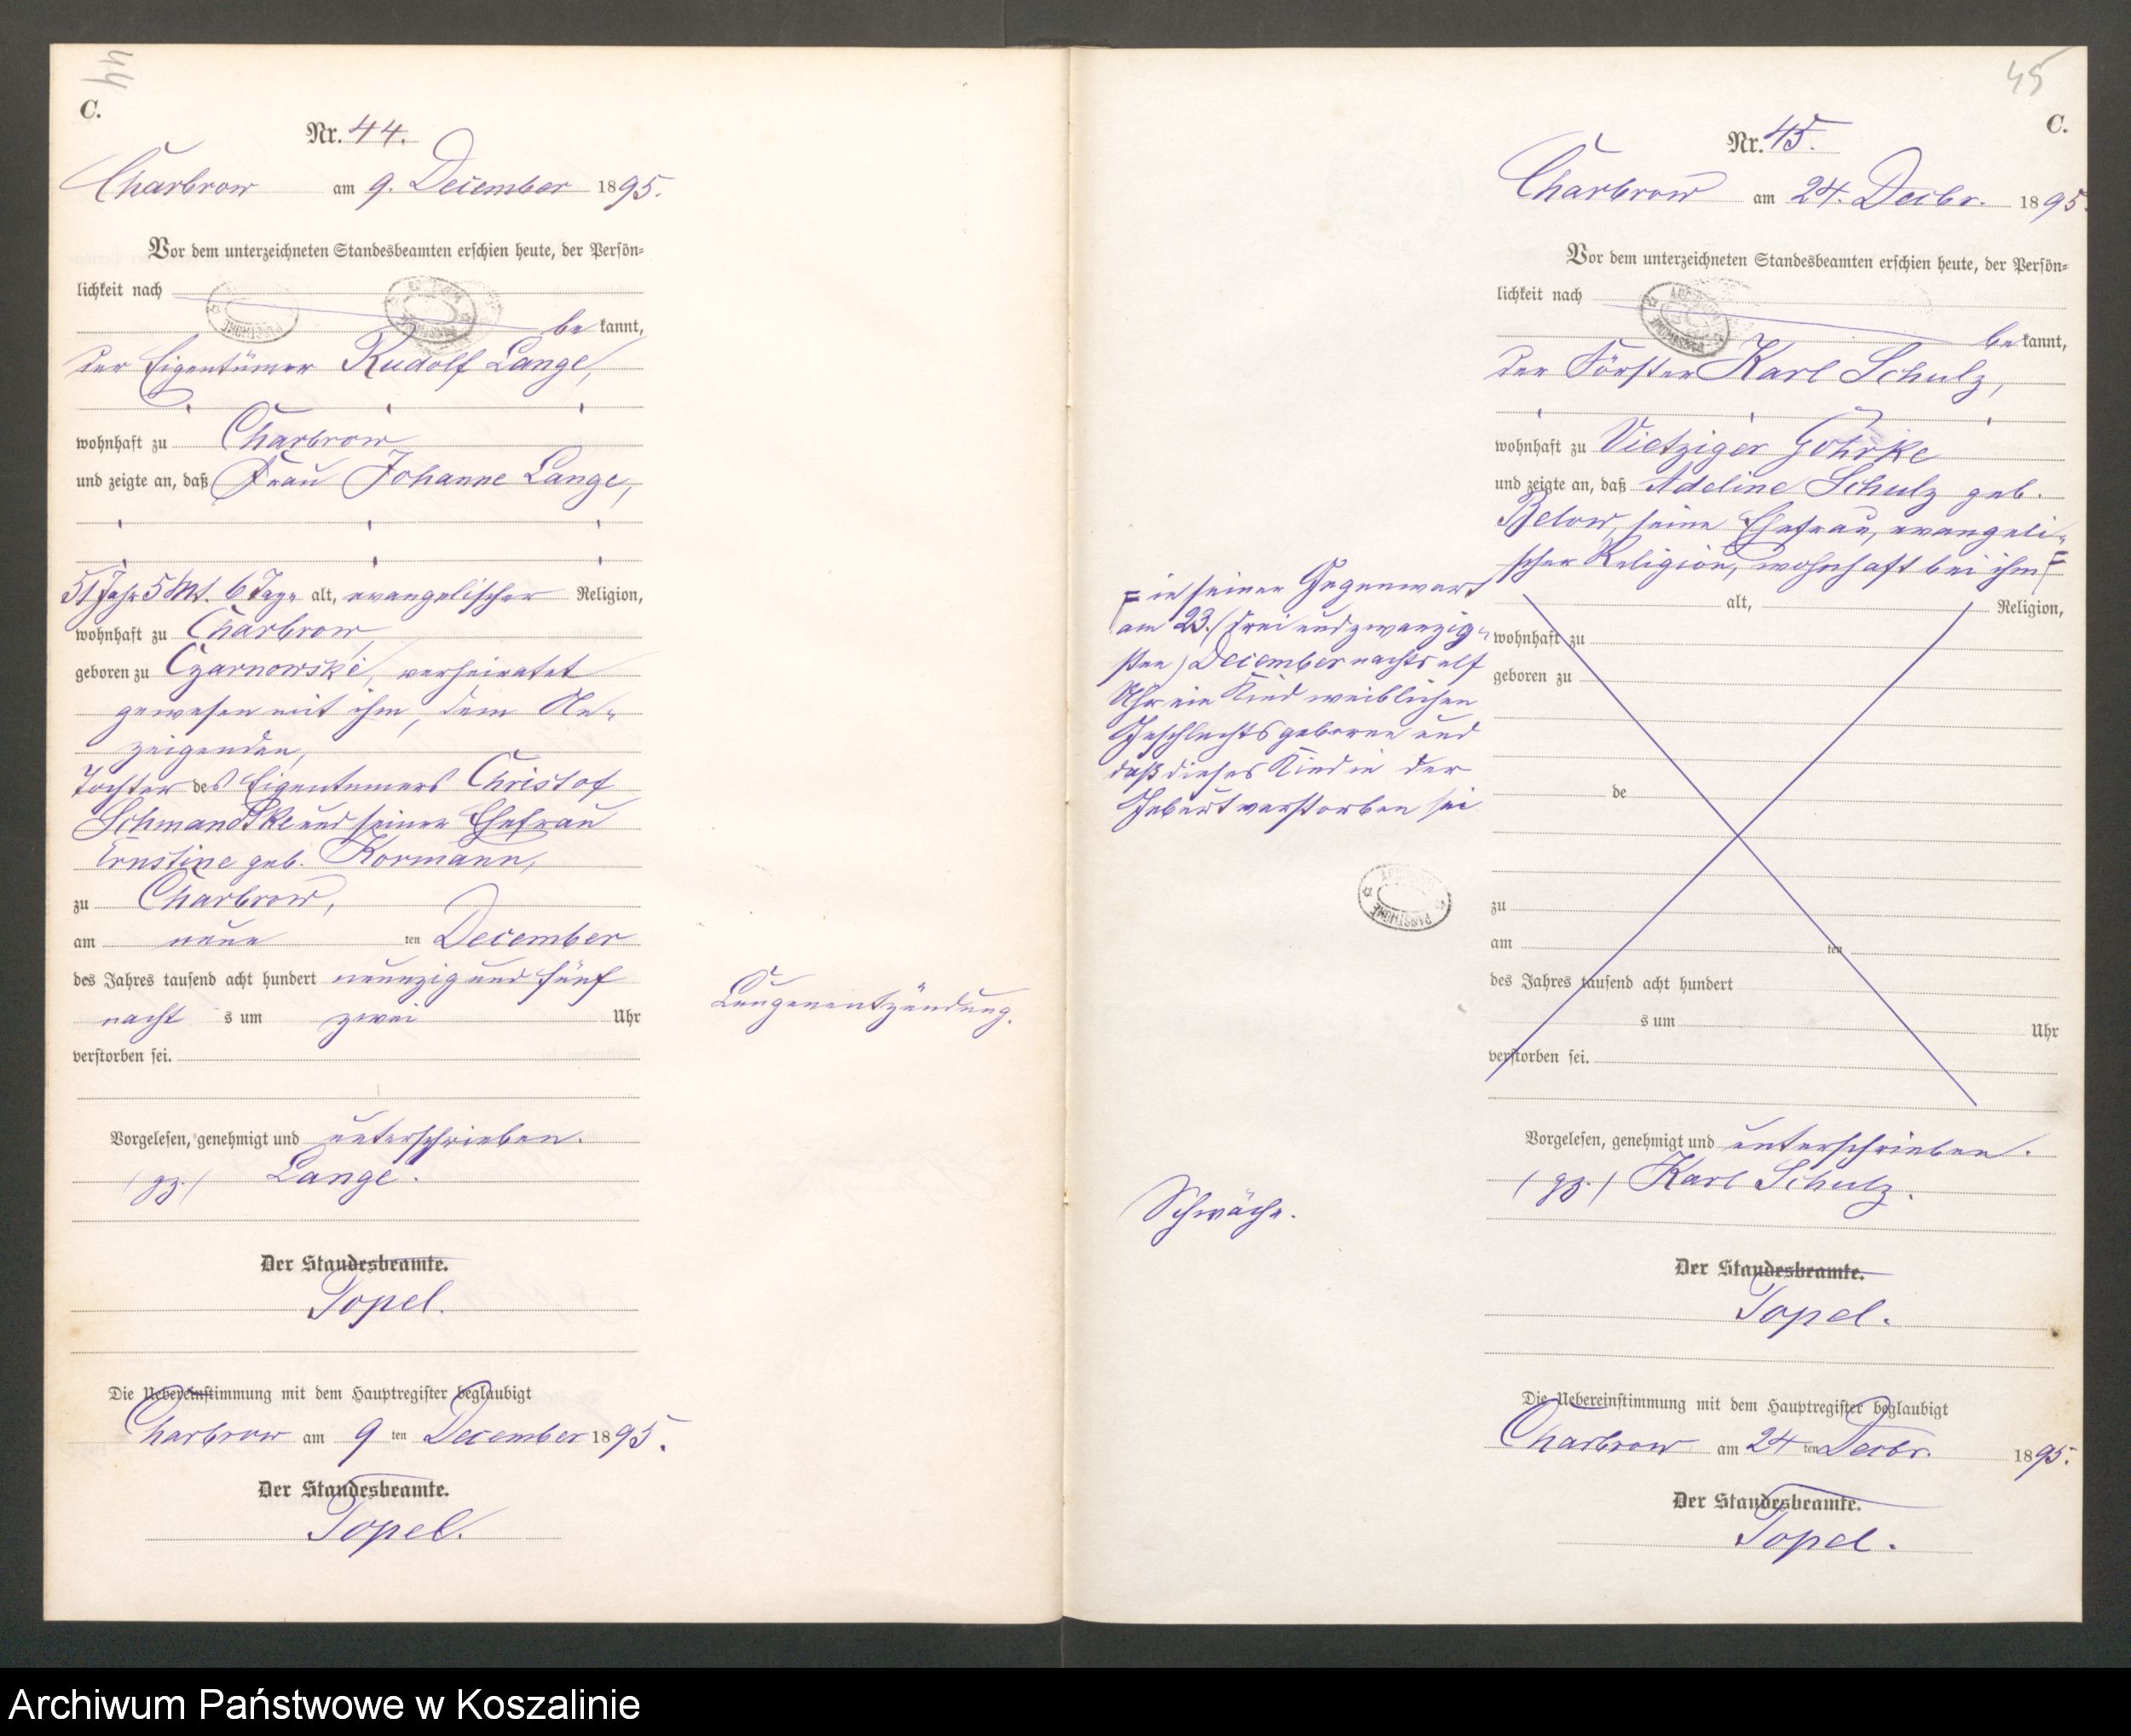 44
C.
Nr. 44.
Charbrow am 9. December 1895.
Vor dem unterzeichneten Standesbeamten erschien heute, der Persön-
lichkeit nach
be kannt,
der Eigentümer Rudolf Lange,
wohnhaft zu Charbrow
und zeigte an, daß Frau Johanne Lange,
51 Jahr 5 Mt. 6 Tage alt, evangelischer Religion,
wohnhaft zu Charbrow,
geboren zu Czarnowske, verheiratet
gewesen mit ihm, dem An-
zeigenden,
Tochter des Eigentümers Christof
Schmandtke und seiner Ehefrau
Ernstine geb. Kormann,
zu Charbrow,
am neun ten December
des Jahres tausend acht hundert neunzig und fünf
nacht s um zwei Uhr
verstorben sei.
Lungenentzündung.
Vorgelesen, genehmigt und unterschrieben.
(gz.) Lange.
Der Standesbeamte.
Topel.
Die Uebereinstimmung mit dem Hauptregister beglaubigt
Charbrow am 9 ten December 1895.
Der Standesbeamte.
Topel.
45
C.
Nr. 45.
Charbrow am 24. Decbr. 1895
Vor dem unterzeichneten Standesbeamten erschien heute, der Persön-
lichkeit nach
be kannt,
der Förster Karl Schulz,
wohnhaft zu Vietziger Göhrke
und zeigte an, daß Adeline Schulz geb.
Below, seine Ehefrau, evangeli-
scher Religion, wohnhaft bei ihm
in seiner Gegenwart
am 23. (drei und zwanzig-
sten) December nachts elf
Uhr ein Kind weiblichen
Geschlechts geboren und
daß dieses Kind in der
Geburt verstorben sei
alt, Religion,
wohnhaft zu
geboren zu
de
zu
am ten
des Jahres tausend acht hundert
s um Uhr
verstorben sei.
Vorgelesen, genehmigt und unterschrieben.
(gz.) Karl Schulz.
Schwäche.
Der Standesbeamte.
Topel.
Die Uebereinstimmung mit dem Hauptregister beglaubigt
Charbrow am 24 ten Decbr. 1895.
Der Standesbeamte.
Topel.
Archiwum Państwowe w Koszalinie